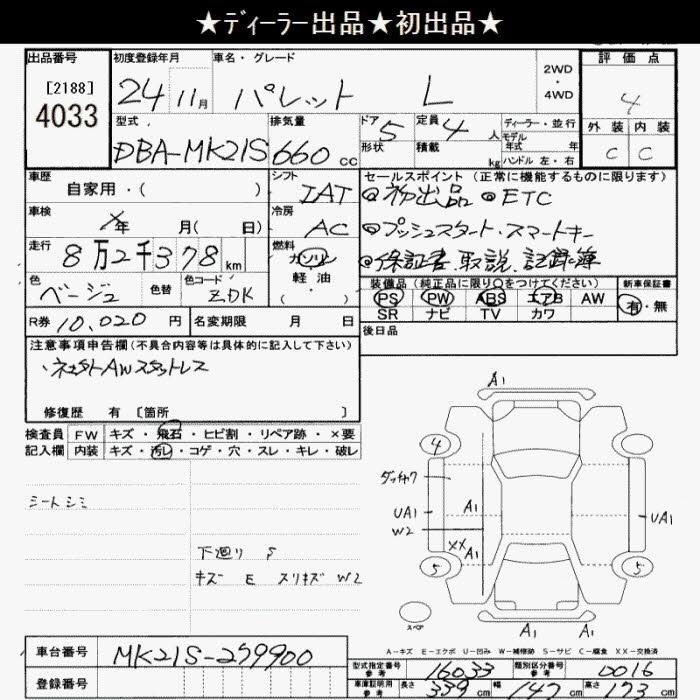 ★ディーラー出品★初出品★
出品番号
[2188]
4033
初度登録年月
24 11月
車名・グレード
パレット L
2WD
・
4WD
評価点
4
外装 内装
C C
型式
DBA-MK21S
排気量
660 cc
ドア 5
形状
定員 4 人
積載 kg
ディーラー・並行
モデル
年式 年
ハンドル 左・右
車歴
自家用・( )
シフト
IAT
セールスポイント (正常に機能するものに限ります)
◎初出品 ◎ETC
◎プッシュスタート・スマートキー
◎保証書、取説、記録簿
車検
×年 月( 日)
冷房
AC
走行
8万2千378km
燃料
ガソリン
軽油
( )
色
ベージュ
色替
色コード
ZDK
装備品 (純正品に限り○をつけてください)
PS PW ABS エアB AW
SR ナビ TV カワ
新車保証書
有・無
R券 10,020 円
名変期限 月 日
後日品
注意事項申告欄(不具合内容等は具体的に記入して下さい)
・社外AWスタットレス
修復歴 有 [箇所 ]
検査員
記入欄
FW キズ・飛石・ヒビ割・リペア跡・×要
内装 キズ・汚レ・コゲ・穴・スレ・キレ・破レ
シートシミ
下廻り S
キズ E スリキズ W2
A1
4
UA1
W2
A1
XX
A1
5
UA1
5
スペア
A1 A1
A-キズ E-エクボ U-凹み W-補修跡 S-サビ C-腐食 XX-交換済
車台番号
MK21S-259900
登録番号
型式指定番号
参考
16033
類別区分番号
参考
0016
車庫証明用
参考
長さ 339 cm 幅 147 cm 高さ 173 cm